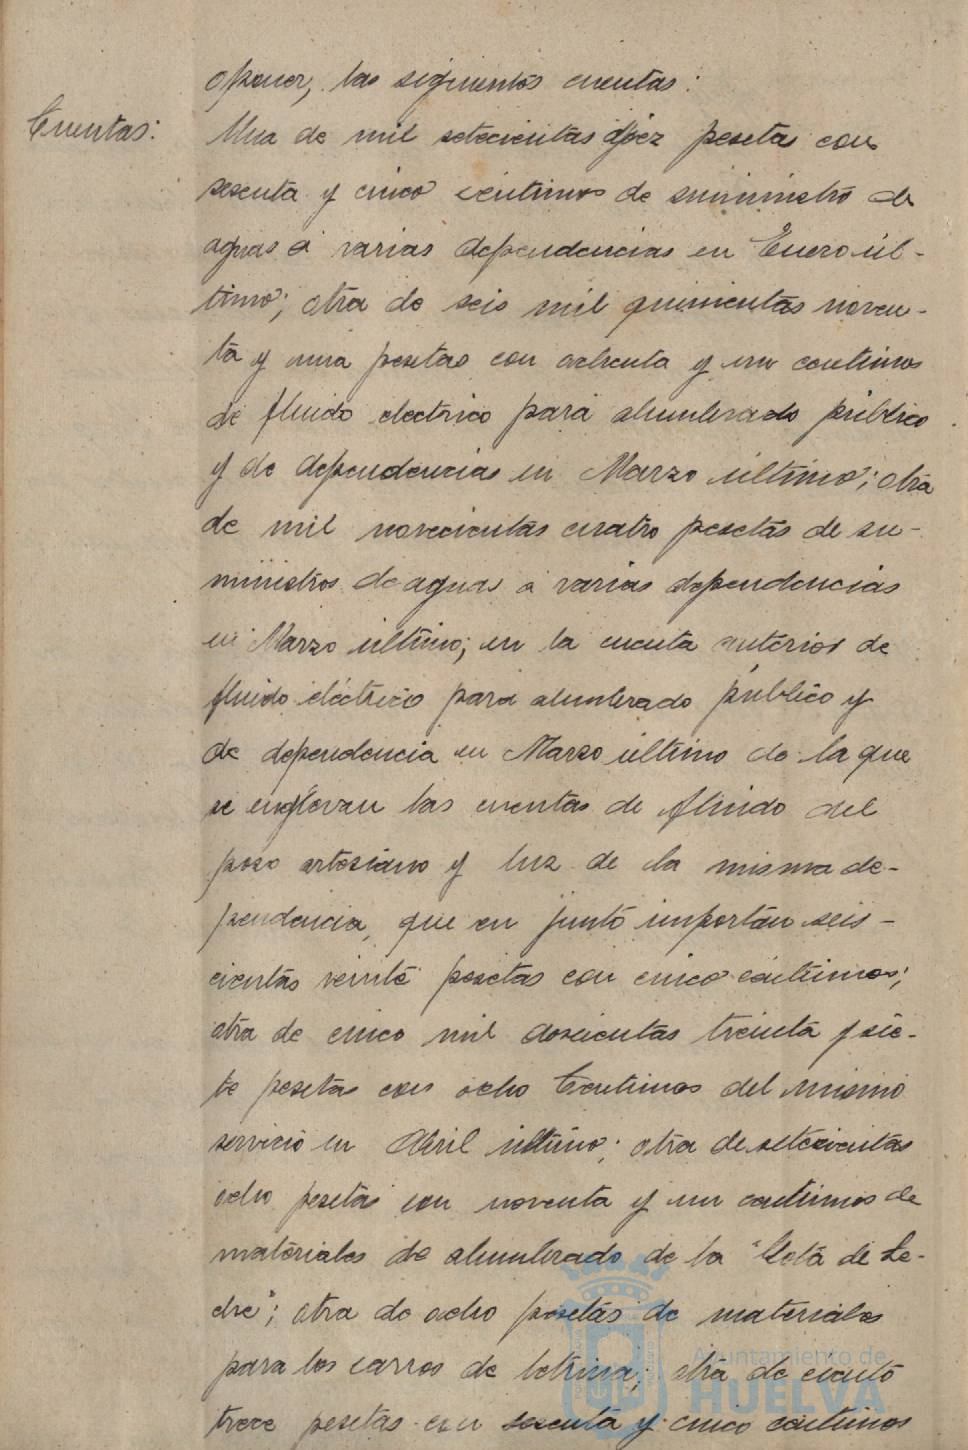 oponer, las siguientes cuentas:
Cuentas: Una de mil setecientas diez pesetas con
sesenta y cinco céntimos de suministro de
aguas a varias dependencias en Enero úl-
timo; otra de seis mil quinientas noven-
ta y una pesetas con ochenta y un centimos
de fluido electrico para alumbrado público
y de dependencias en Marzo último; otra
de mil novecientas cuatro pesetas de su-
ministros de aguas a varias dependencias
en Marzo último; en la cuenta anterior de
fluido eléctrico para alumbrado público y
de dependencia en Marzo último de la que
se englovan las cuentas de fluido del
pozo artesiano y luz de la misma de-
pendencia, que en junto importan seis-
cientas veinte pesetas con cinco céntimos;
otra de cinco mil doscientas treinta y sie-
te pesetas con ocho centimos del mismo
servicio en Abril último; otra de setecientas
ocho pesetas con noventa y un centimos de
materiales de alumbrado de la "Gota de Le-
che"; otra de ocho pesetas de materiales
para los carros de letrina; otra de ciento
trece pesetas con sesenta y cinco centimos
Ayuntamiento de
HUELVA